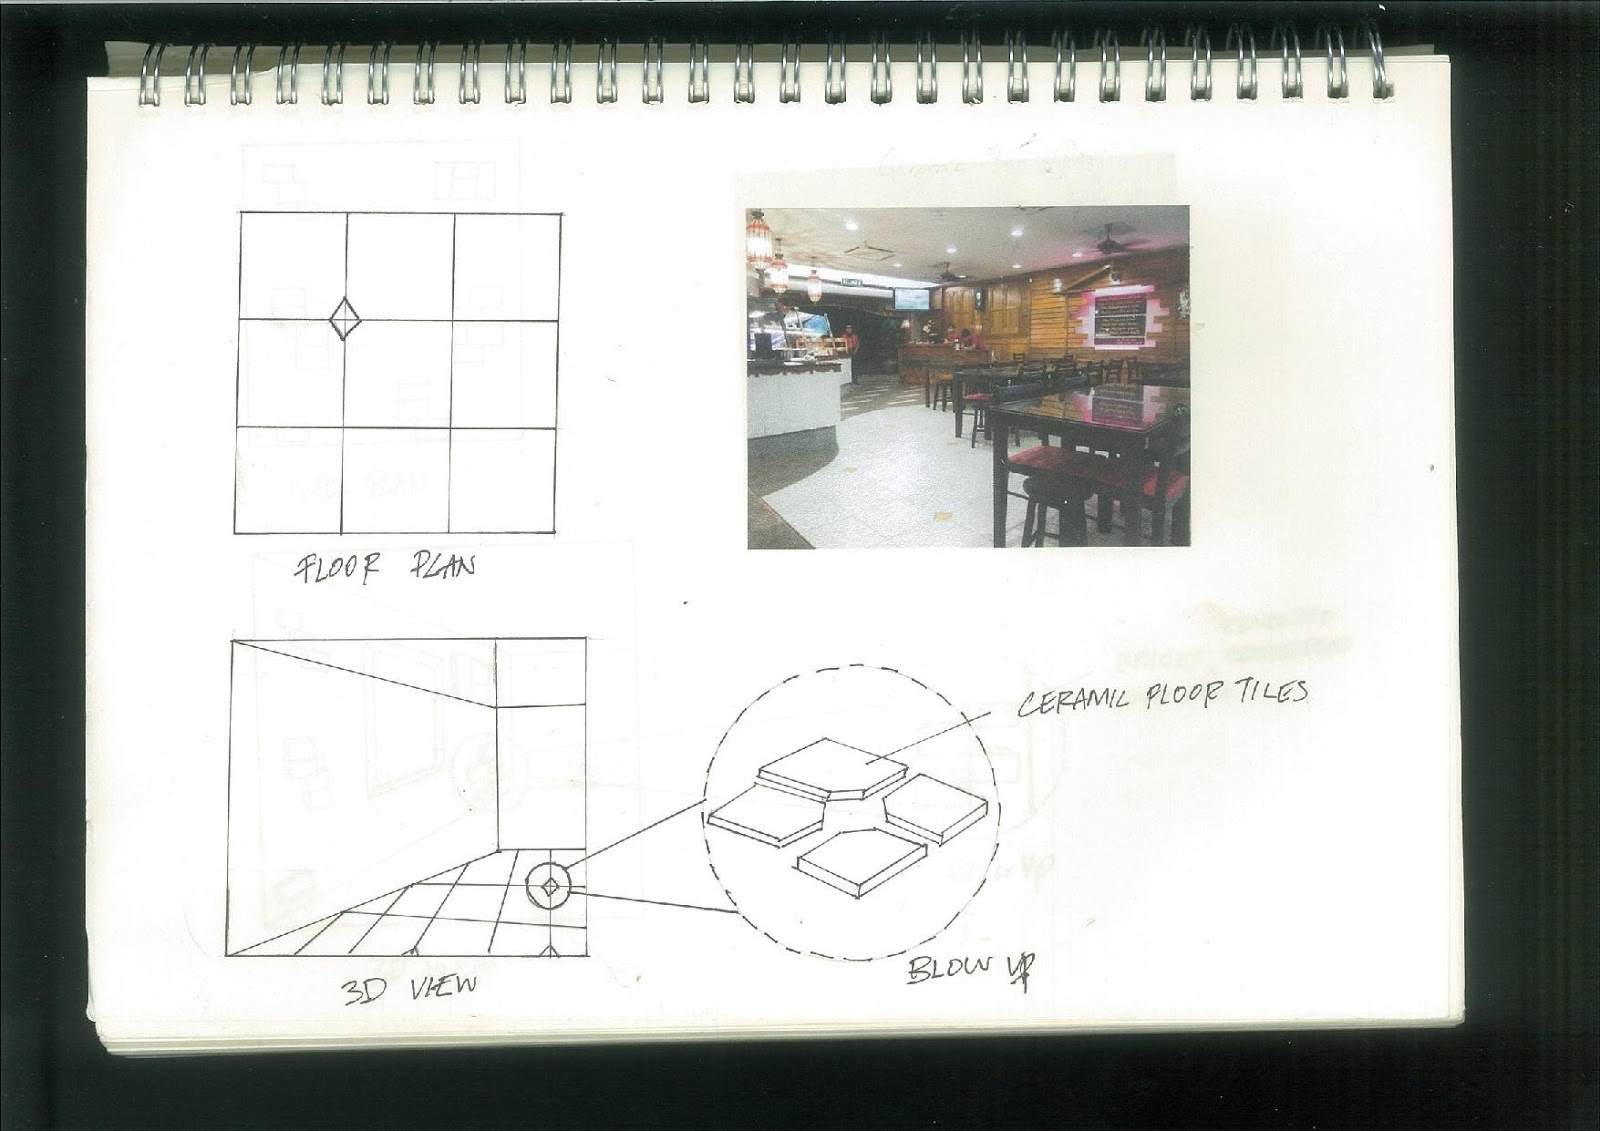 FLOOR PLAN
CERAMIC FLOOR TILES
3D VIEW
BLOW UP